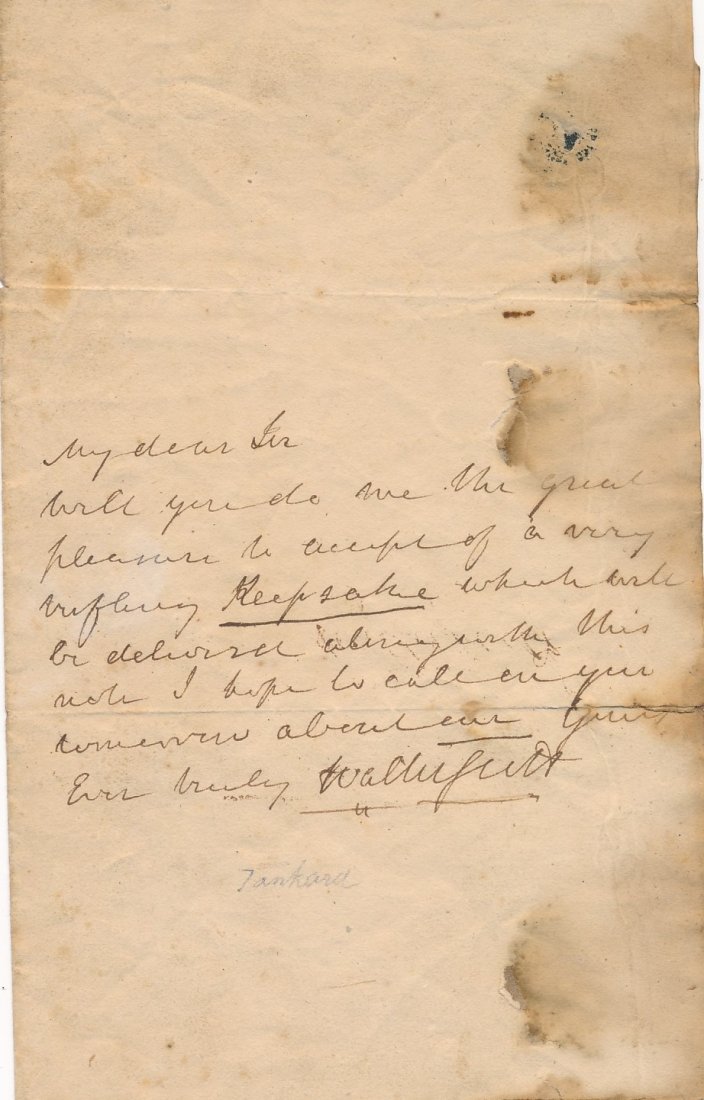 My dear Sir
Will you do me the great
pleasure to accept of a very
trifling Keepsake which will
be delivered along with this
note I hope to call on you
tomorrow about one Yours
Ever truly Walter Scott
Tankard